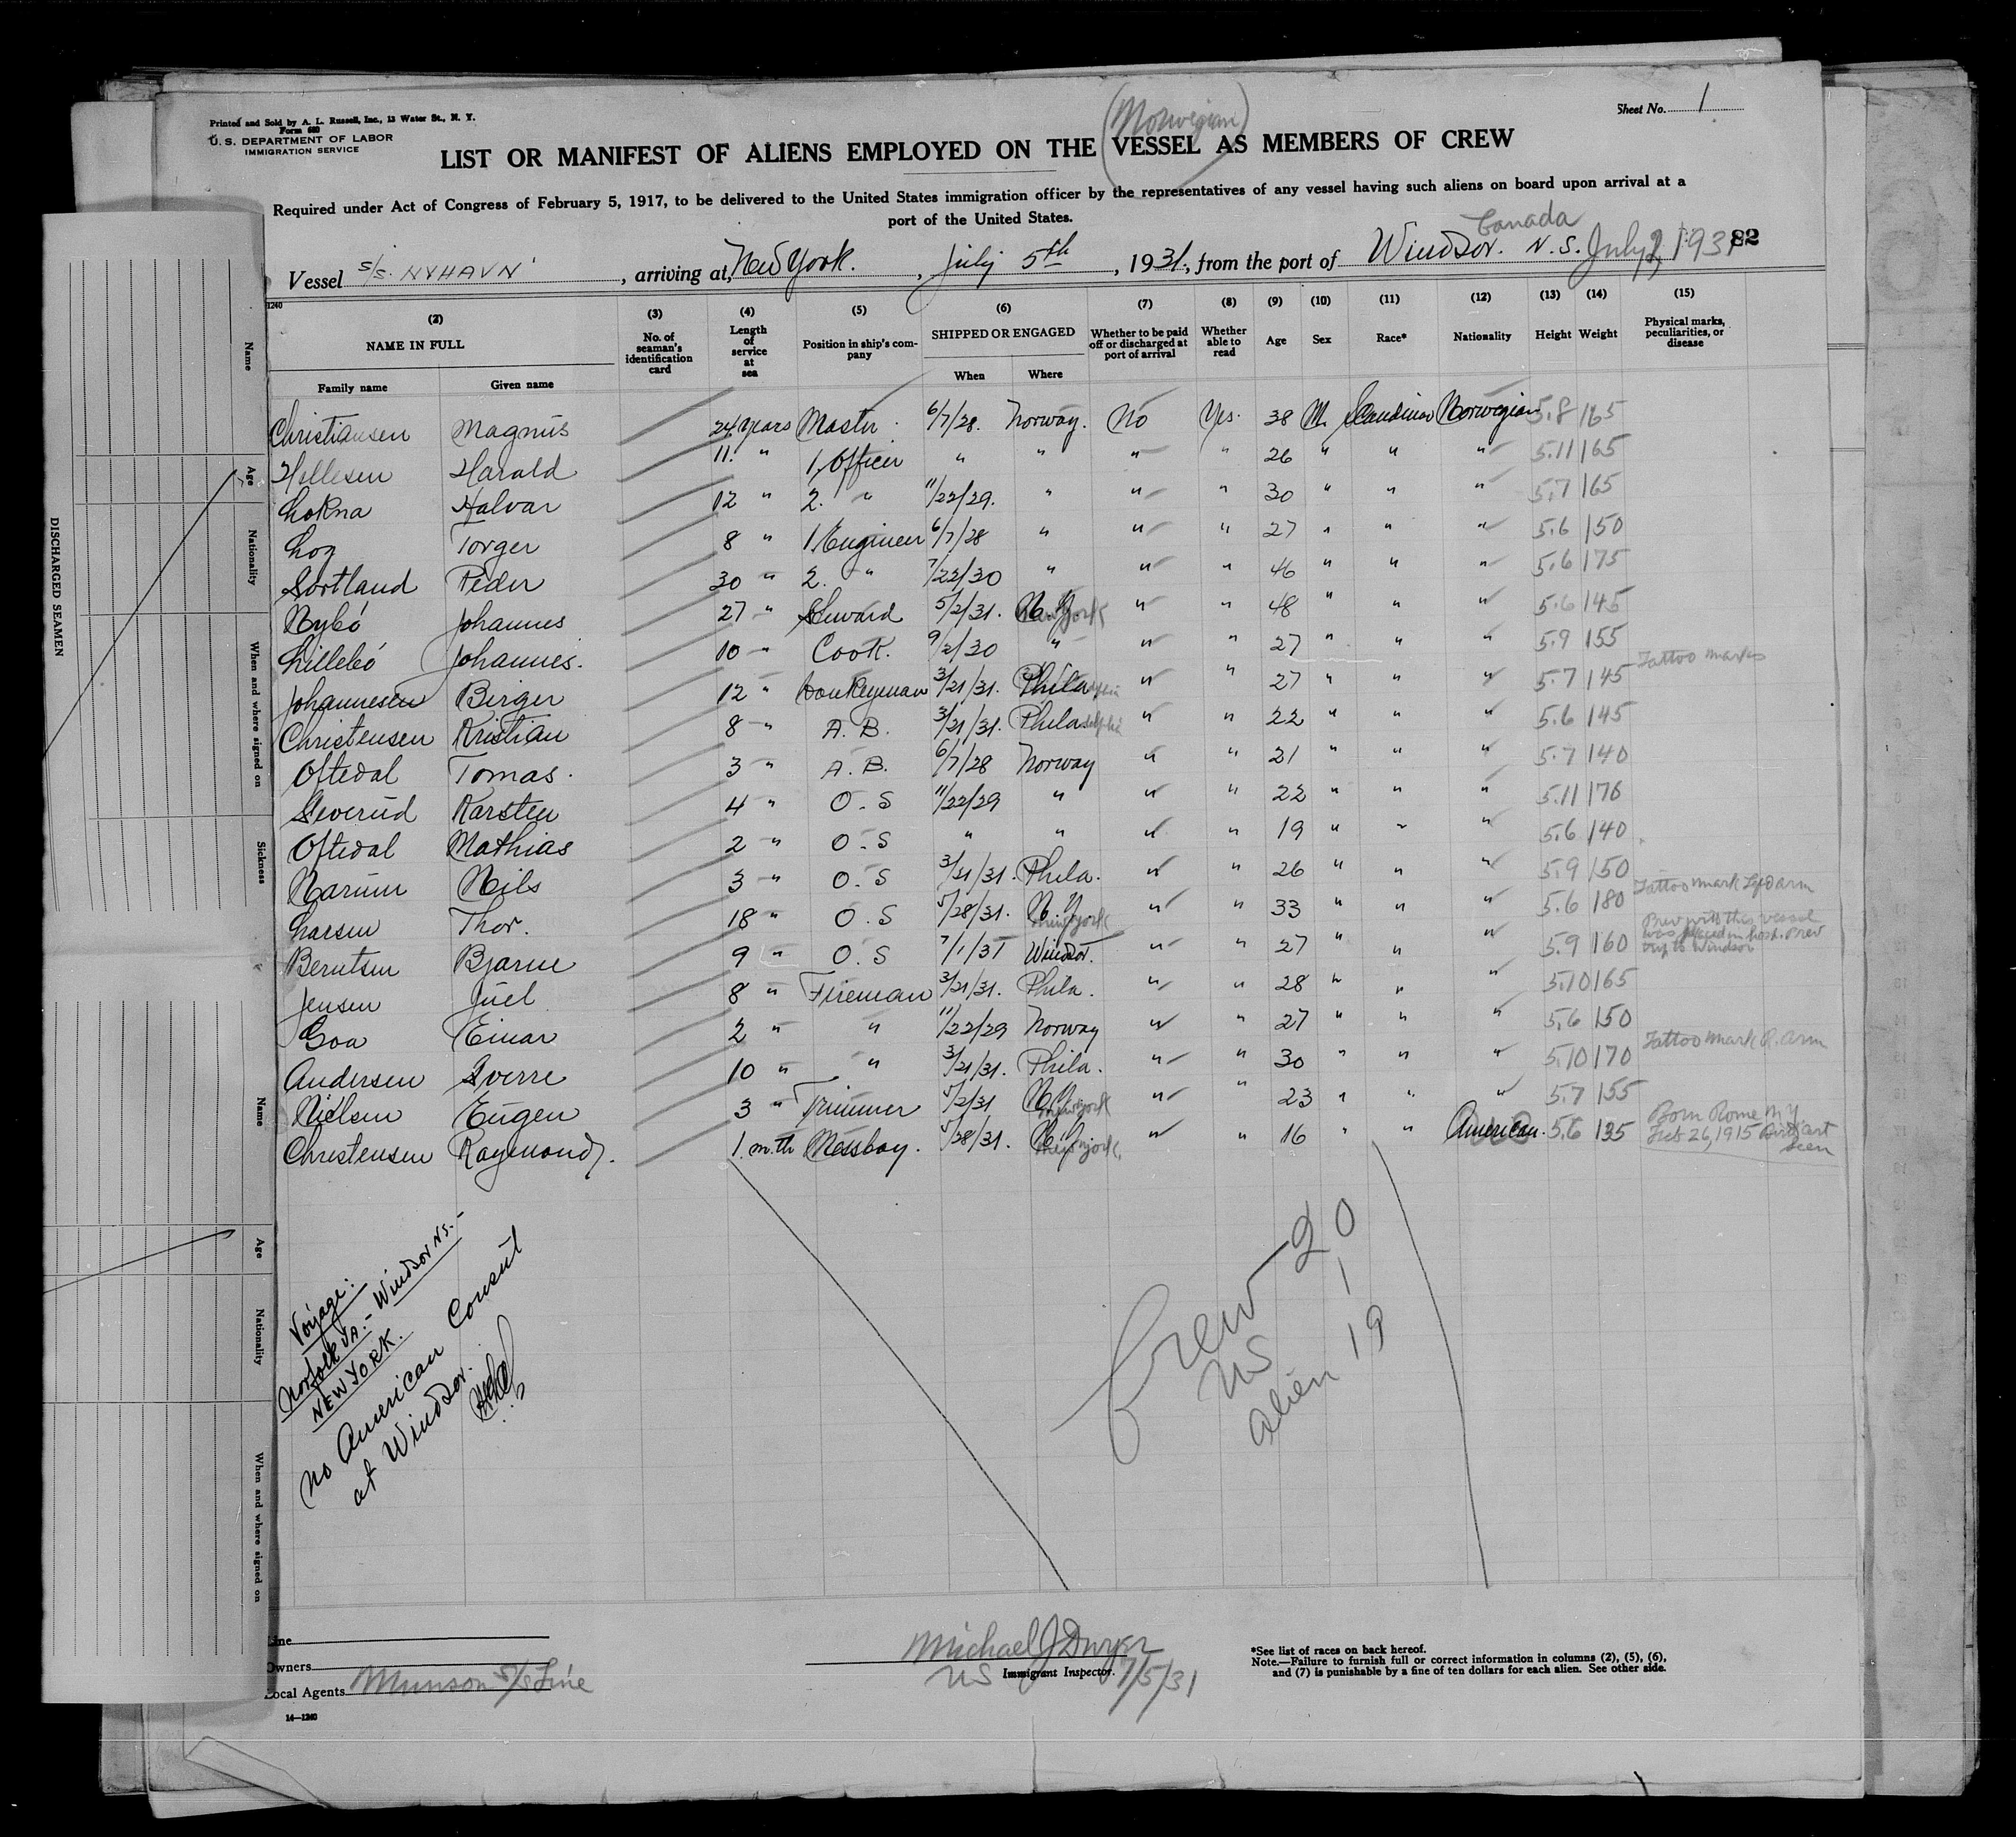 Printed and Sold by A. L. Russell, Inc., 13 Water St., N. Y.
Form 680
U. S. DEPARTMENT OF LABOR
IMMIGRATION SERVICE
Sheet No. 1
(Norwegian)
LIST OR MANIFEST OF ALIENS EMPLOYED ON THE VESSEL AS MEMBERS OF CREW
Required under Act of Congress of February 5, 1917, to be delivered to the United States immigration officer by the representatives of any vessel having such aliens on board upon arrival at a
port of the United States.
Canada
Vessel S/S. NYHAVN, arriving at New York., July 5th, 1931, from the port of Windsor. N.S. July 2, 1931 82
1240
(2) (3) (4) (5) (6) (7) (8) (9) (10) (11) (12) (13) (14) (15)
NAME IN FULL No. of seaman's identification card Length of service at sea Position in ship's company SHIPPED OR ENGAGED Whether to be paid off or discharged at port of arrival Whether able to read Age Sex Race* Nationality Height Weight Physical marks, peculiarities, or disease
Family name Given name When Where
Christiansen Magnus 24 years Master. 6/7/28. Norway. No Yes. 38 M. Scandinav Norwegian 5.8 165
Hellesen Harald 11. " 1. Officer " " " " 26 " " " 5.11 165
Lokna Halvar 12 " 2. " 11/22/29. " " " 30 " " " 5.7 165
Loy Torger 8 " 1 Engineer 6/7/28 " " " 27 " " " 5.6 150
Sortland Peder 30 " 2. " 7/22/30 " " " 46 " " " 5.6 175
Nybö Johannes 27 " Steward 5/2/31. N.Y. New York " " 48 " " " 5.6 145
Lillebö Johannes. 10 " Cook. 9/2/30 " " " 27 " " " 5.9 155
Johannesen Birger 12 " Donkeyman 3/21/31. Philadelphia " " 27 " " " 5.7 145 Tattoo marks
Christensen Kristian 8 " A. B. 3/21/31. Philadelphia " " 22 " " " 5.6 145
Oftedal Tomas. 3 " A. B. 6/7/28 Norway " " 21 " " " 5.7 140
Severud Karsten 4 " O. S 11/22/29 " " " 22 " " " 5.11 176
Oftedal Mathias 2 " O. S " " " " 19 " " " 5.6 140
Narum Nils 3 " O. S 3/21/31. Phila. " " 26 " " " 5.9 150
Larsen Thor. 18 " O. S 5/28/31. N.Y. New York " " 33 " " " 5.6 180 Tattoo mark Left arm
Berntsen Bjarne 9 " O. S 7/1/31 Windsor. " " 27 " " " 5.9 160 Prev with this vessel was placed in hosp. prev trip to Windsor
Jensen Juel 8 " Fireman 3/21/31. Phila. " " 28 " " " 5.10 165
Goa Einar 2 " " 11/22/29 Norway " " 27 " " " 5.6 150
Andersen Sverre 10 " " 3/21/31. Phila. " " 30 " " " 5.10 170 Tattoo mark R. arm
Nielsen Eugen 3 " Trimmer 5/2/31 N.Y. New York " " 23 " " " 5.7 155
Christensen Raymond. 1. mth Messboy. 5/28/31. N.Y. New York. " " 16 " " American. 5.6 135 Born Rome NY Feb 26, 1915 Birth cert seen
Voyage:
Norfolk VA. - Windsor N.S. -
NEW YORK.
No American Consul
at Windsor.
Crew 20
US 1
alien 19
Line
Owners
Local Agents Munson S/S Line
14—1240
Michael J Dwyer
US Immigrant Inspector. 7/5/31
*See list of races on back hereof.
Note.—Failure to furnish full or correct information in columns (2), (5), (6),
and (7) is punishable by a fine of ten dollars for each alien. See other side.
DISCHARGED SEAMEN
Name
Age
Nationality
When and where signed on
Sickness
Name
Age
Nationality
When and where signed on